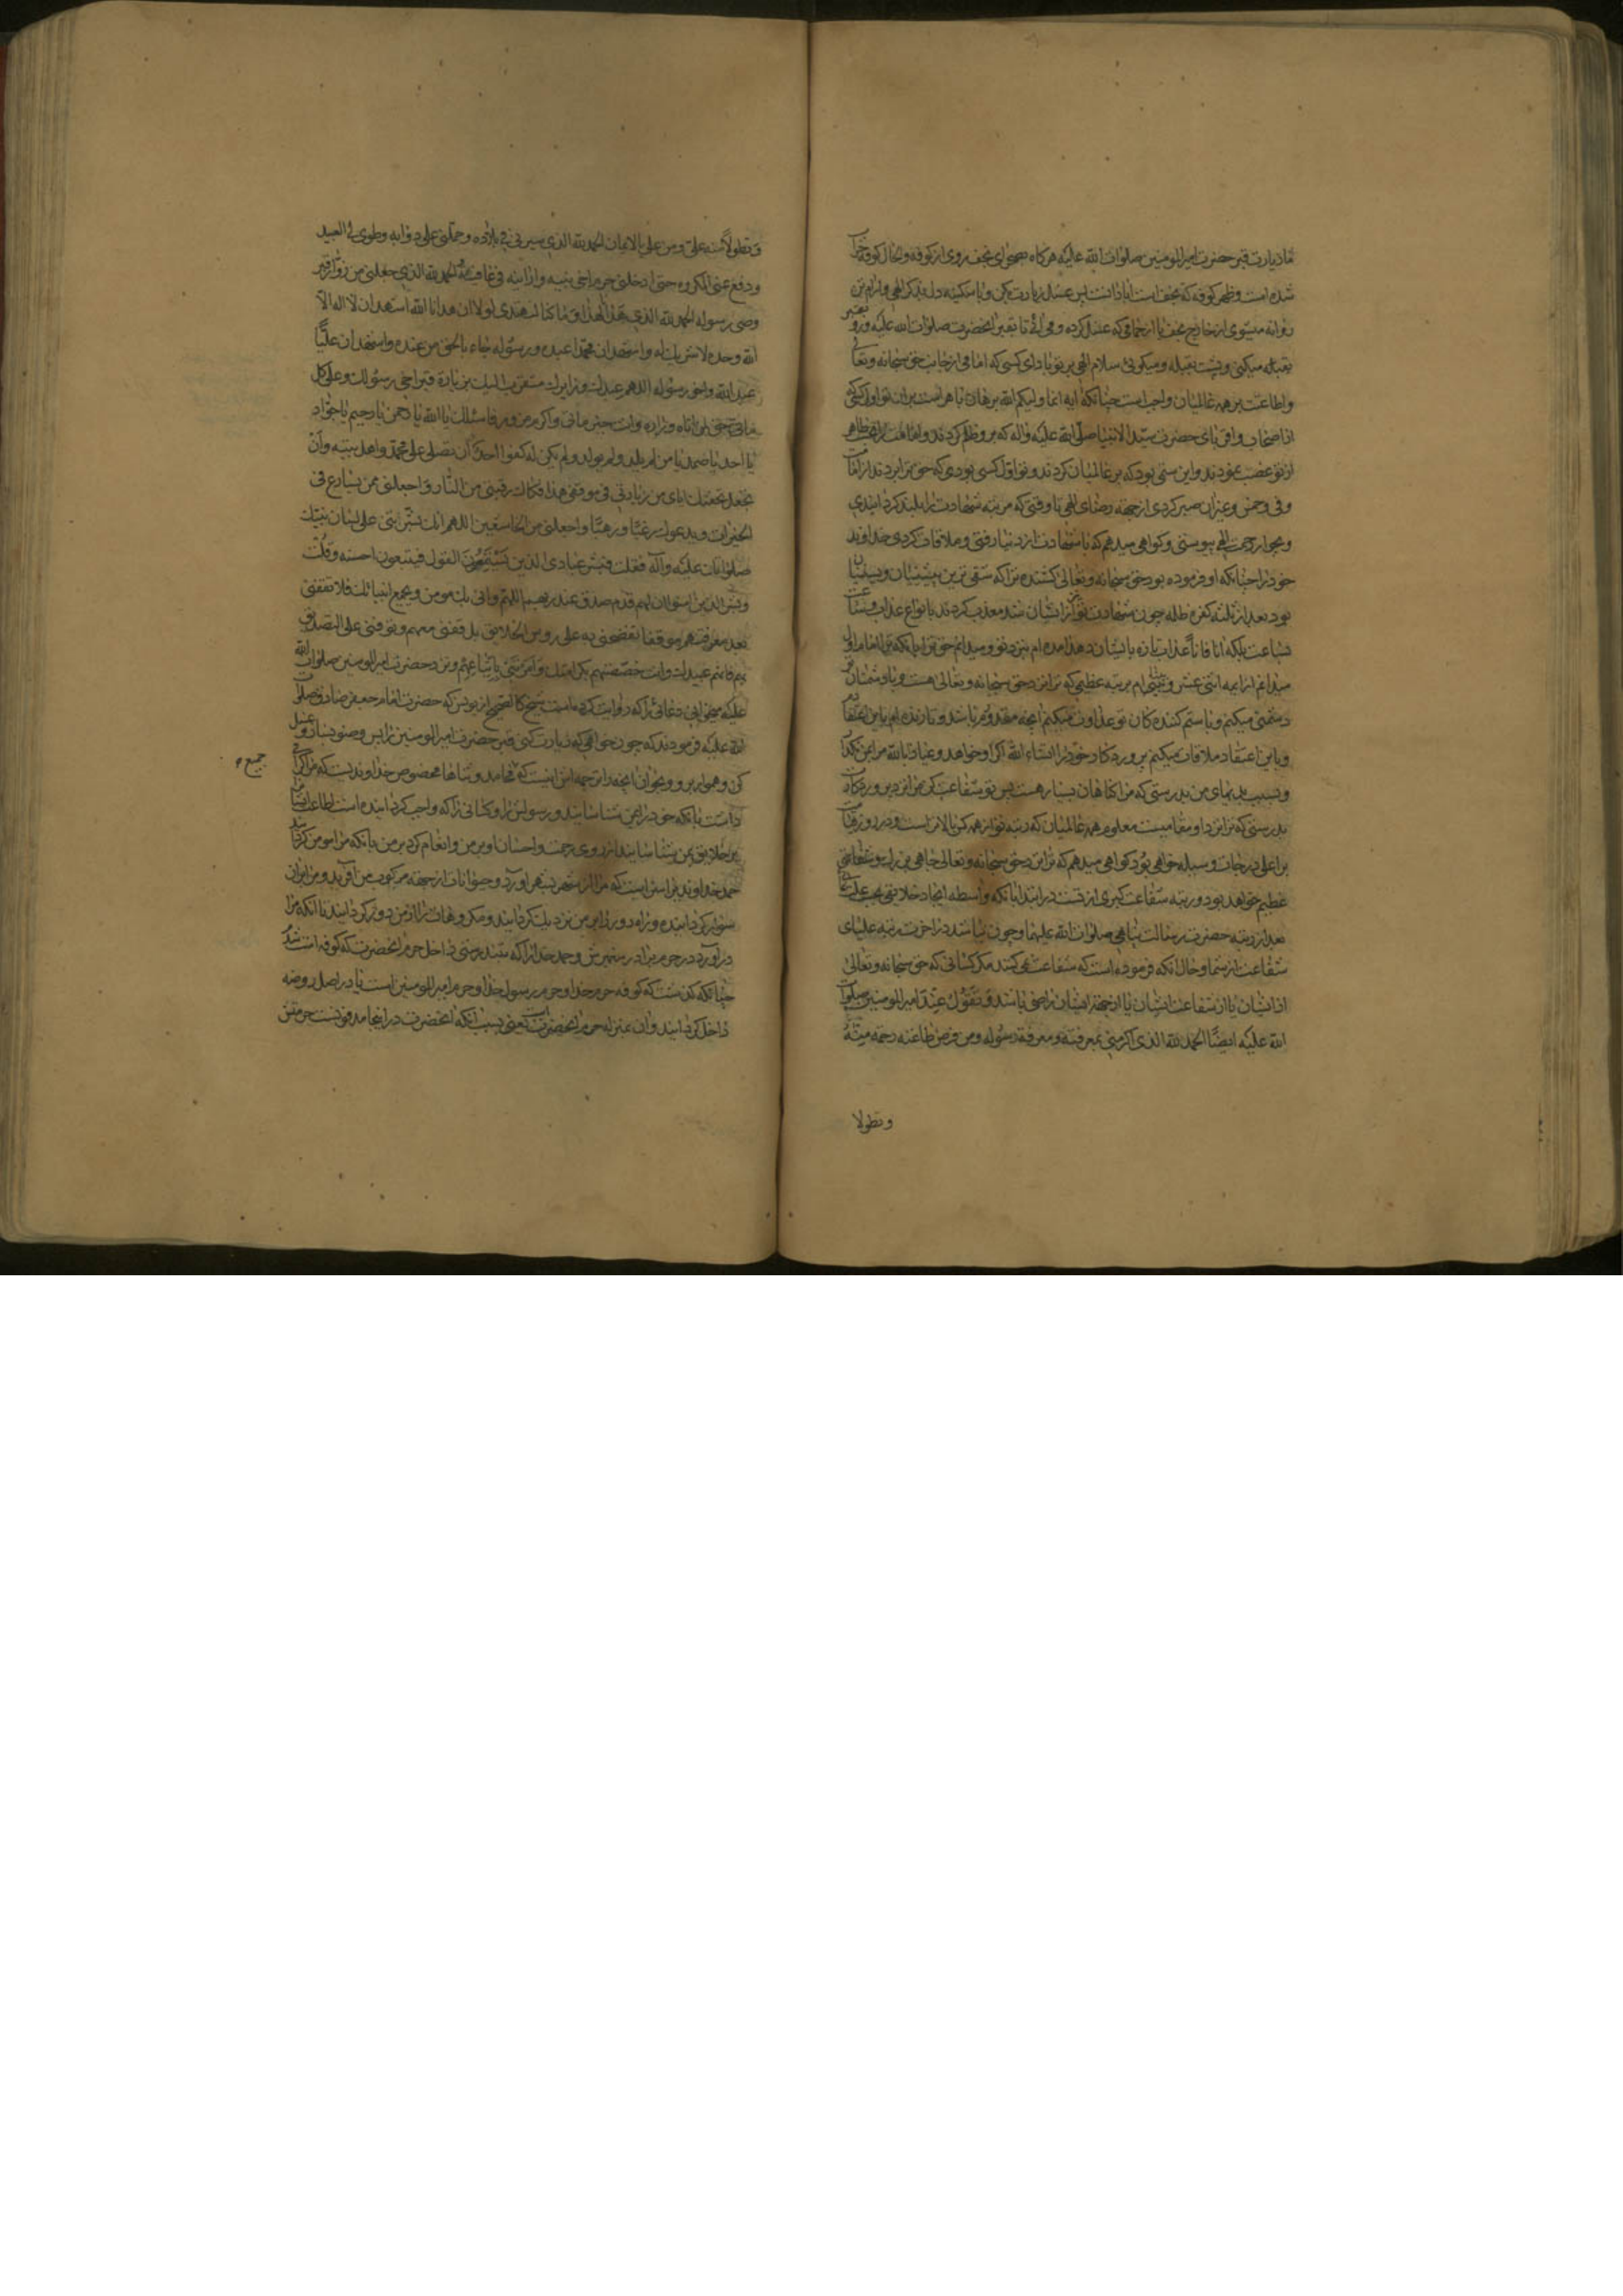 اما زیارت قبر حضرت امیر المومنین صلوات الله علیه هرکاه میخواهی بجف روی از کوفه و الحال کوفه خراب
شده است و ظهر کوفه که نجف است ابادانست پس غسل زیارت بکن و با سکینه دل بذکر الهی و ارام تن
روانه میشوی از خارج نجف یا از حمامی که غسل کرده و می ائی تا بقبر انحضرت صلوات الله علیه و رو بقبر
بقبله میکنی و پشت بقبله و میکوئی سلام الهی بر تو باد ای کسی که امامی از جانب حق سبحانه و تعالی
و اطاعتت بر همه عالمیان واجب است چنانکه ایه انما ولیکم الله برهان باهر است بران تو اول کسی
از اصحاب و اقربای حضرت سید الانبیا صلی الله علیه و اله که برو ظلم کردند و امامت
از تو غصب نمودند و این ستمی بود که بر عالمیان کردند و تو اول کسی بودی که حق ترا بردند از امامت
و فی و خمس و غیر ان صبر کردی از جهة رضای الهی تا وقتی که مرتبه شهادت ترا بلند کردانیدی
و بجوار رحمت الهی پیوستی و کواهی میدهم که با شهادت از دنیا رفتی و ملاقات کردی خداوند
خود را چنانکه او فرموده بود حق سبحانه و تعالی کشنده ترا که شقی ترین پیشینیان و پسینیان
بود بعد از ثلثه کفره ظلمه چون شهادت تو از ایشان شد معذب کرداند بانواع عذاب
ساعت بلکه انا فانا عذاب تازه بایشان دهد امده ام بنزد تو و میدانم حق ترا بانکه ترا امام اول
میدانم از ایمه اثنی عشر و بینا ام بر تبه عظیمی که ترا نزد حق سبحانه و تعالی هست و با دشمنان تو
دشمنی میکنم و با ستم کننده کان تو عداوت میکنم انچه مقدورم باشد و تا زنده ام باین اعتقادم
و باین اعتقاد ملاقات میکنم پروردکار خود را انشاء الله اکر او خواهد و عیاذا بالله مرا بمن نکذارد
و نسبت بدیهای من بدرستی که مرا کناهان بسیار هست پس تو شفاعت کن مرا نزد پروردکارت
بدرستی که ترا نزد او مقامیست معلوم همه عالمیان که رتبه تو از همه کس بالاتر است و در روز قیامت
بر اعلی درجات وسیله خواهی بود کواهی میدهم که ترا نزد حق سبحانه و تعالی جاهی بزرک و شفاعتی
عظیم خواهد بود و رتبه شفاعت کبری از تست در ابتدا بانکه واسطه ایجاد خلایقی بحسب علت غائی
بعد از رتبه حضرت رسالت پناهی صلوات الله علیهما و چون نباشد در اخرت رتبه علیای
شفاعت از شما و حال انکه فرموده است که شفاعت نمی کنند مکر کسانی که حق سبحانه و تعالی
از ایشان یا از شفاعت ایشان یا از جهة ایشان راضی باشد و تقول عند امیر المومنین صلوات
الله علیه ایضا الحمد لله الذی اکرمنی بمعرفته و معرفة رسوله و من فرض طاعته رحمة منه
و تطولا
و تطولا منه علی و من علی بالایمان الحمد لله الذی سیرنی فی بلاده و حملنی علی دوابه و طوی لی البعید
و دفع عنی المکروه حتی ادخلنی حرم اخی نبیه و ارانیه فی عافیة الحمد لله الذی جعلنی من زوار قبر
وصی رسوله الحمد لله الذی هدانا لهذا و ما کنا لنهتدی لولا ان هدانا الله اشهد ان لا اله الا
الله وحده لا شریک له و اشهد ان محمدا عبده و رسوله جاء بالحق من عنده و اشهد ان علیا
عبد الله و اخو رسوله اللهم عبدک و زایرک متقرب الیک بزیارة قبر اخی رسولک و علی کل
ماتی حق لمن اتاه و زاره و انت خیر ماتی و اکرم مزور فاسئلک یا الله یا رحمن یا رحیم یا جواد
یا احد یا صمد یا من لم یلد و لم یولد و لم یکن له کفوا احد ان تصلی علی محمد و اهل بیته و ان
تجعل تحفتک ایای من زیارتی فی موقفی هذا فکاک رقبتی من النار و اجعلنی ممن یسارع فی
الخیرات و یدعوک رغبا و رهبا و اجعلنی من الخاشعین اللهم انک بشرتنی علی لسان نبیک
صلواتک علیه و اله فقلت فبشر عبادی الذین یستمعون القول فیتبعون احسنه و قلت
و بشر الذین امنوا ان لهم قدم صدق عند ربهم اللهم و انی بک مومن و بجمیع انبیائک فلا تقفنی
بعد معرفتهم موقفا تفضحنی به علی روس الخلایق بل قفنی معهم و توفنی علی التصدیق
بهم فانهم عبیدک و انت خصصتهم بکرامتک و امرتنی باتباعهم و نزد حضرت امیر المومنین صلوات الله
علیه میخوانی دعائی را که روایت کرده است شیخ کالصحیح از یونس که حضرت امام جعفر صادق صلوات
الله علیه فرمودند که چون خواهی که زیارت کنی قبر حضرت امیر المومنین را پس وضو بساز و غسل
کن و هموار برو و بخوان انچه را ترجمه اش اینست که محامد و ثناها مخصوص خداوندیست که مرا کرامی
جمیع
داشت بانکه خود را بمن شناسانید و رسولش را و کسانی را که واجب کردانیده است اطاعت ایشان را
بر خلایق بمن شناسانید از روی رحمت و احسان او بر من و انعام کرد بر من بانکه مرا مومن کردانید
حمد خداوندیرا سزاست که مرا از شهر بشهر اورد و حیوانات از جهة مرکوب من افرید و مرا بران
سوار کردانیده و راه دور را بر من نزدیک کردانید و مکروهات را از من دور کردانید تا انکه مرا
در اورد در حرم برادر پیغمبرش و حمد خدا را که بتندرستی داخل حرم انحضرت که کوفه است شدم
چنانکه کذشت که کوفه حرم خدا و حرم رسول خدا و حرم امیر المومنین است یا در اصل روضه
داخل کردانید و ان بمنزله حرم انحضرتست یعنی بسبب انکه انحضرت در اینجا مدفونست